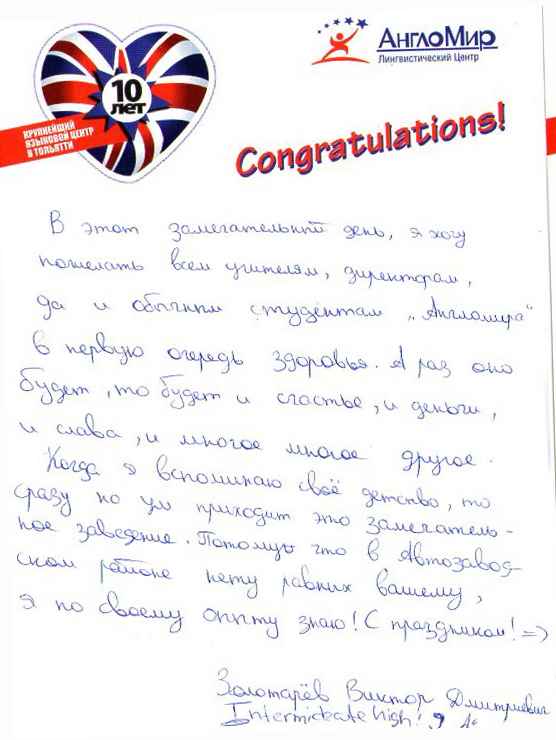 10
лет
КРУПНЕЙШИЙ
ЯЗЫКОВОЙ ЦЕНТР
В ТОЛЬЯТТИ
АнглоМир
Лингвистический Центр
Congratulations!
В этот замечательный день, я хочу
пожелать всем учителям, директорам,
да и обычным студентам „Англомира"
в первую очередь здоровья. А раз оно
будет, то будет и счастье, и деньги,
и слава, и многое многое другое.
Когда я вспоминаю своё детство, то
сразу на ум приходит это замечатель-
ное заведение. Потому что в Автозавод-
ском районе нету равных вашему,
я по своему опыту знаю! С праздником! =)
Золотарёв Виктор Дмитриевич
Intermideate high!